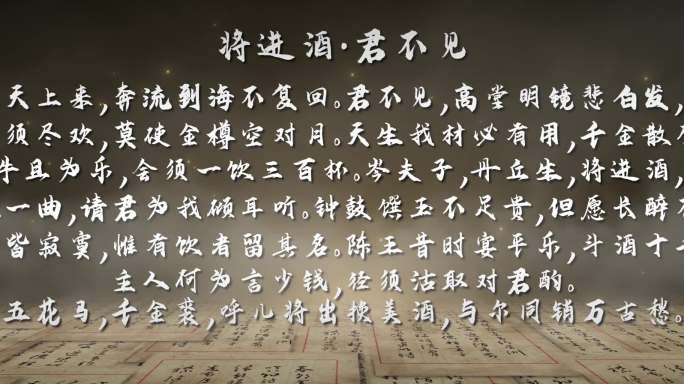 将进酒·君不见
天上来,奔流到海不复回。君不见,高堂明镜悲白发,
须尽欢,莫使金樽空对月。天生我材必有用,千金散
牛且为乐,会须一饮三百杯。岑夫子,丹丘生,将进酒,
一曲,请君为我倾耳听。钟鼓馔玉不足贵,但愿长醉
皆寂寞,惟有饮者留其名。陈王昔时宴平乐,斗酒十
主人何为言少钱,径须沽取对君酌。
五花马,千金裘,呼儿将出换美酒,与尔同销万古愁。